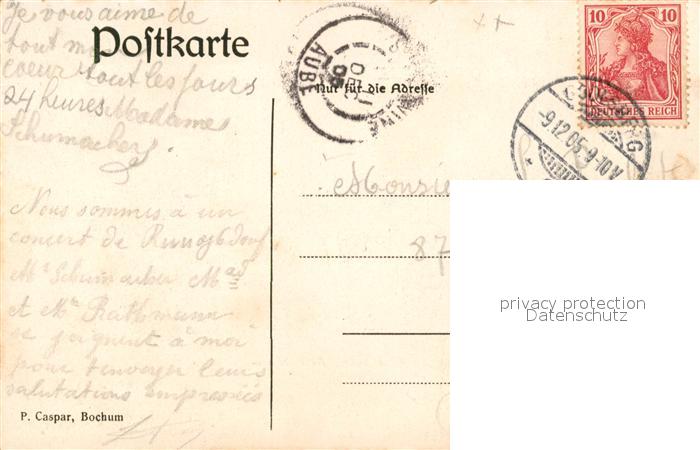 Je vous aime de
tout mon
Postkarte
coeur tout les jours
24 heures Madame
Schumacher.
Nous sommes à un
concert de
Mr Schumacher Mad
et Mr Rathmann
se joignent à moi
pour t'envoyer leurs
salutations empressées
P. Caspar, Bochum
AUBE
Nur für die Adresse
10 10
DEUTSCHES REICH
-9.12.05.9-10V
Monsie
87
privacy protection
Datenschutz